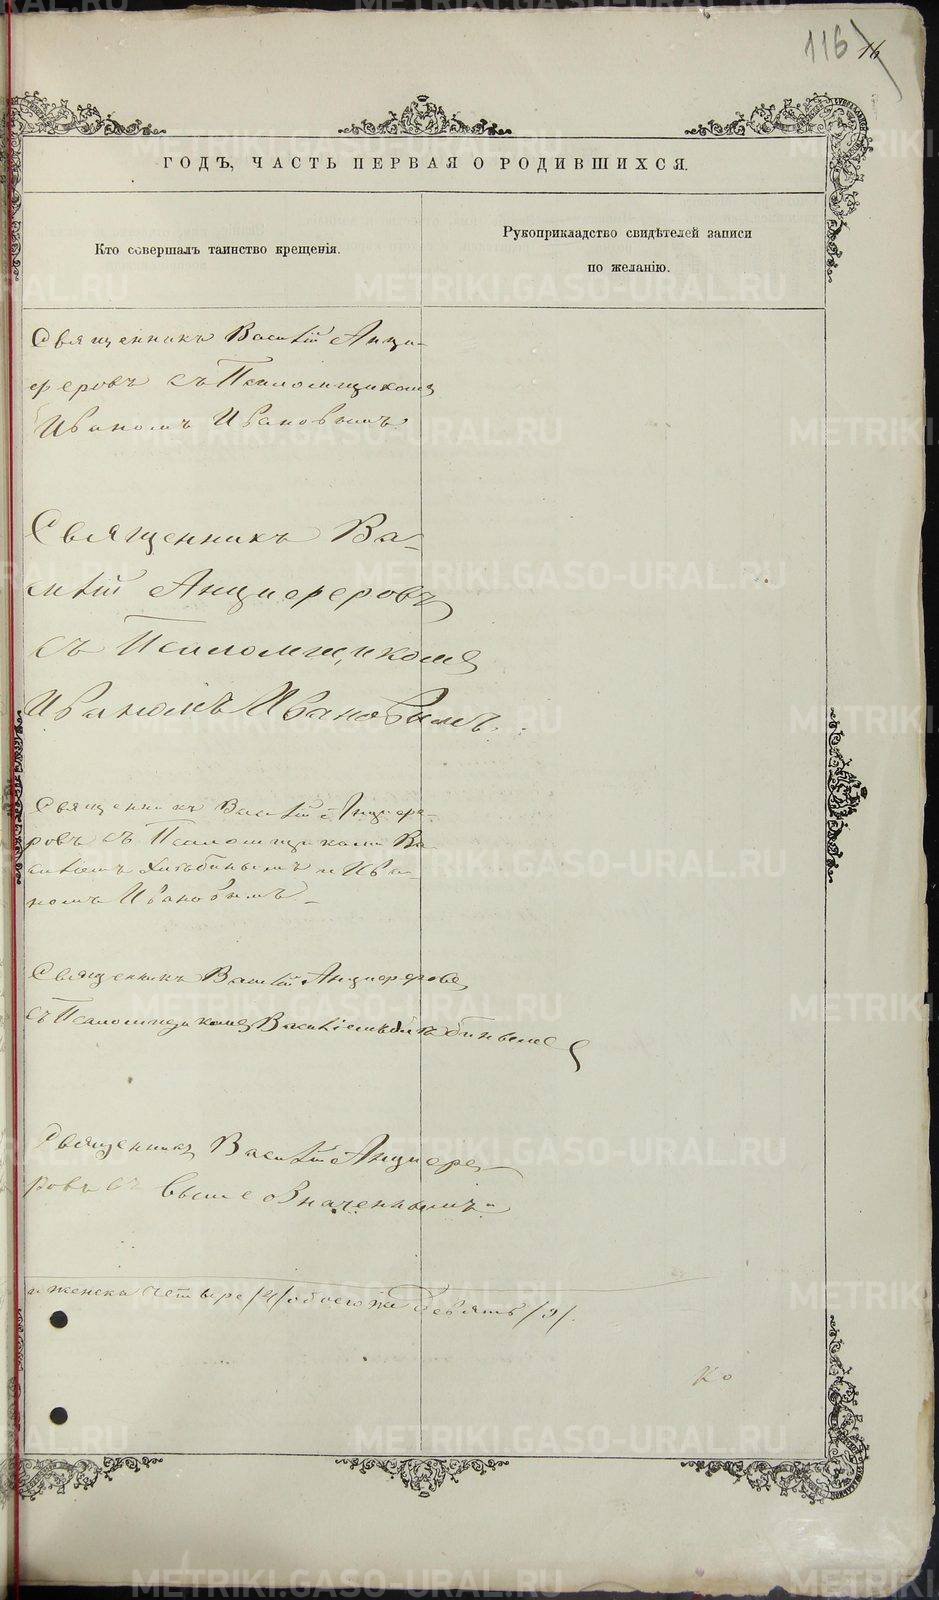 116
16
ГОДЪ, ЧАСТЬ ПЕРВАЯ О РОДИВШИХСЯ.
Кто совершалъ таинство крещенія.
Рукоприкладство свидѣтелей записи
по желанію.
Священникъ Василій Анци-
феровъ съ Псаломщикомъ
Иваномъ Ивановымъ
Священникъ Ва-
силій Анциферовъ
съ Псаломщикомъ
Иваномъ Ивановымъ.
Священникъ Василій Анцифе-
ровъ съ Псаломщиками Ва-
силіемъ Хлѣбинымъ и Ива-
номъ Ивановымъ
Священникъ Василій Анциферовъ
съ Псаломщикомъ Василіемъ Хлѣбинымъ
Священникъ Василій Анцифе-
ровъ съ вышеозначеннымъ
и женска четыре /4/ обоего же девять /9/.
Ко
METRIKI.GASO-URAL.RU